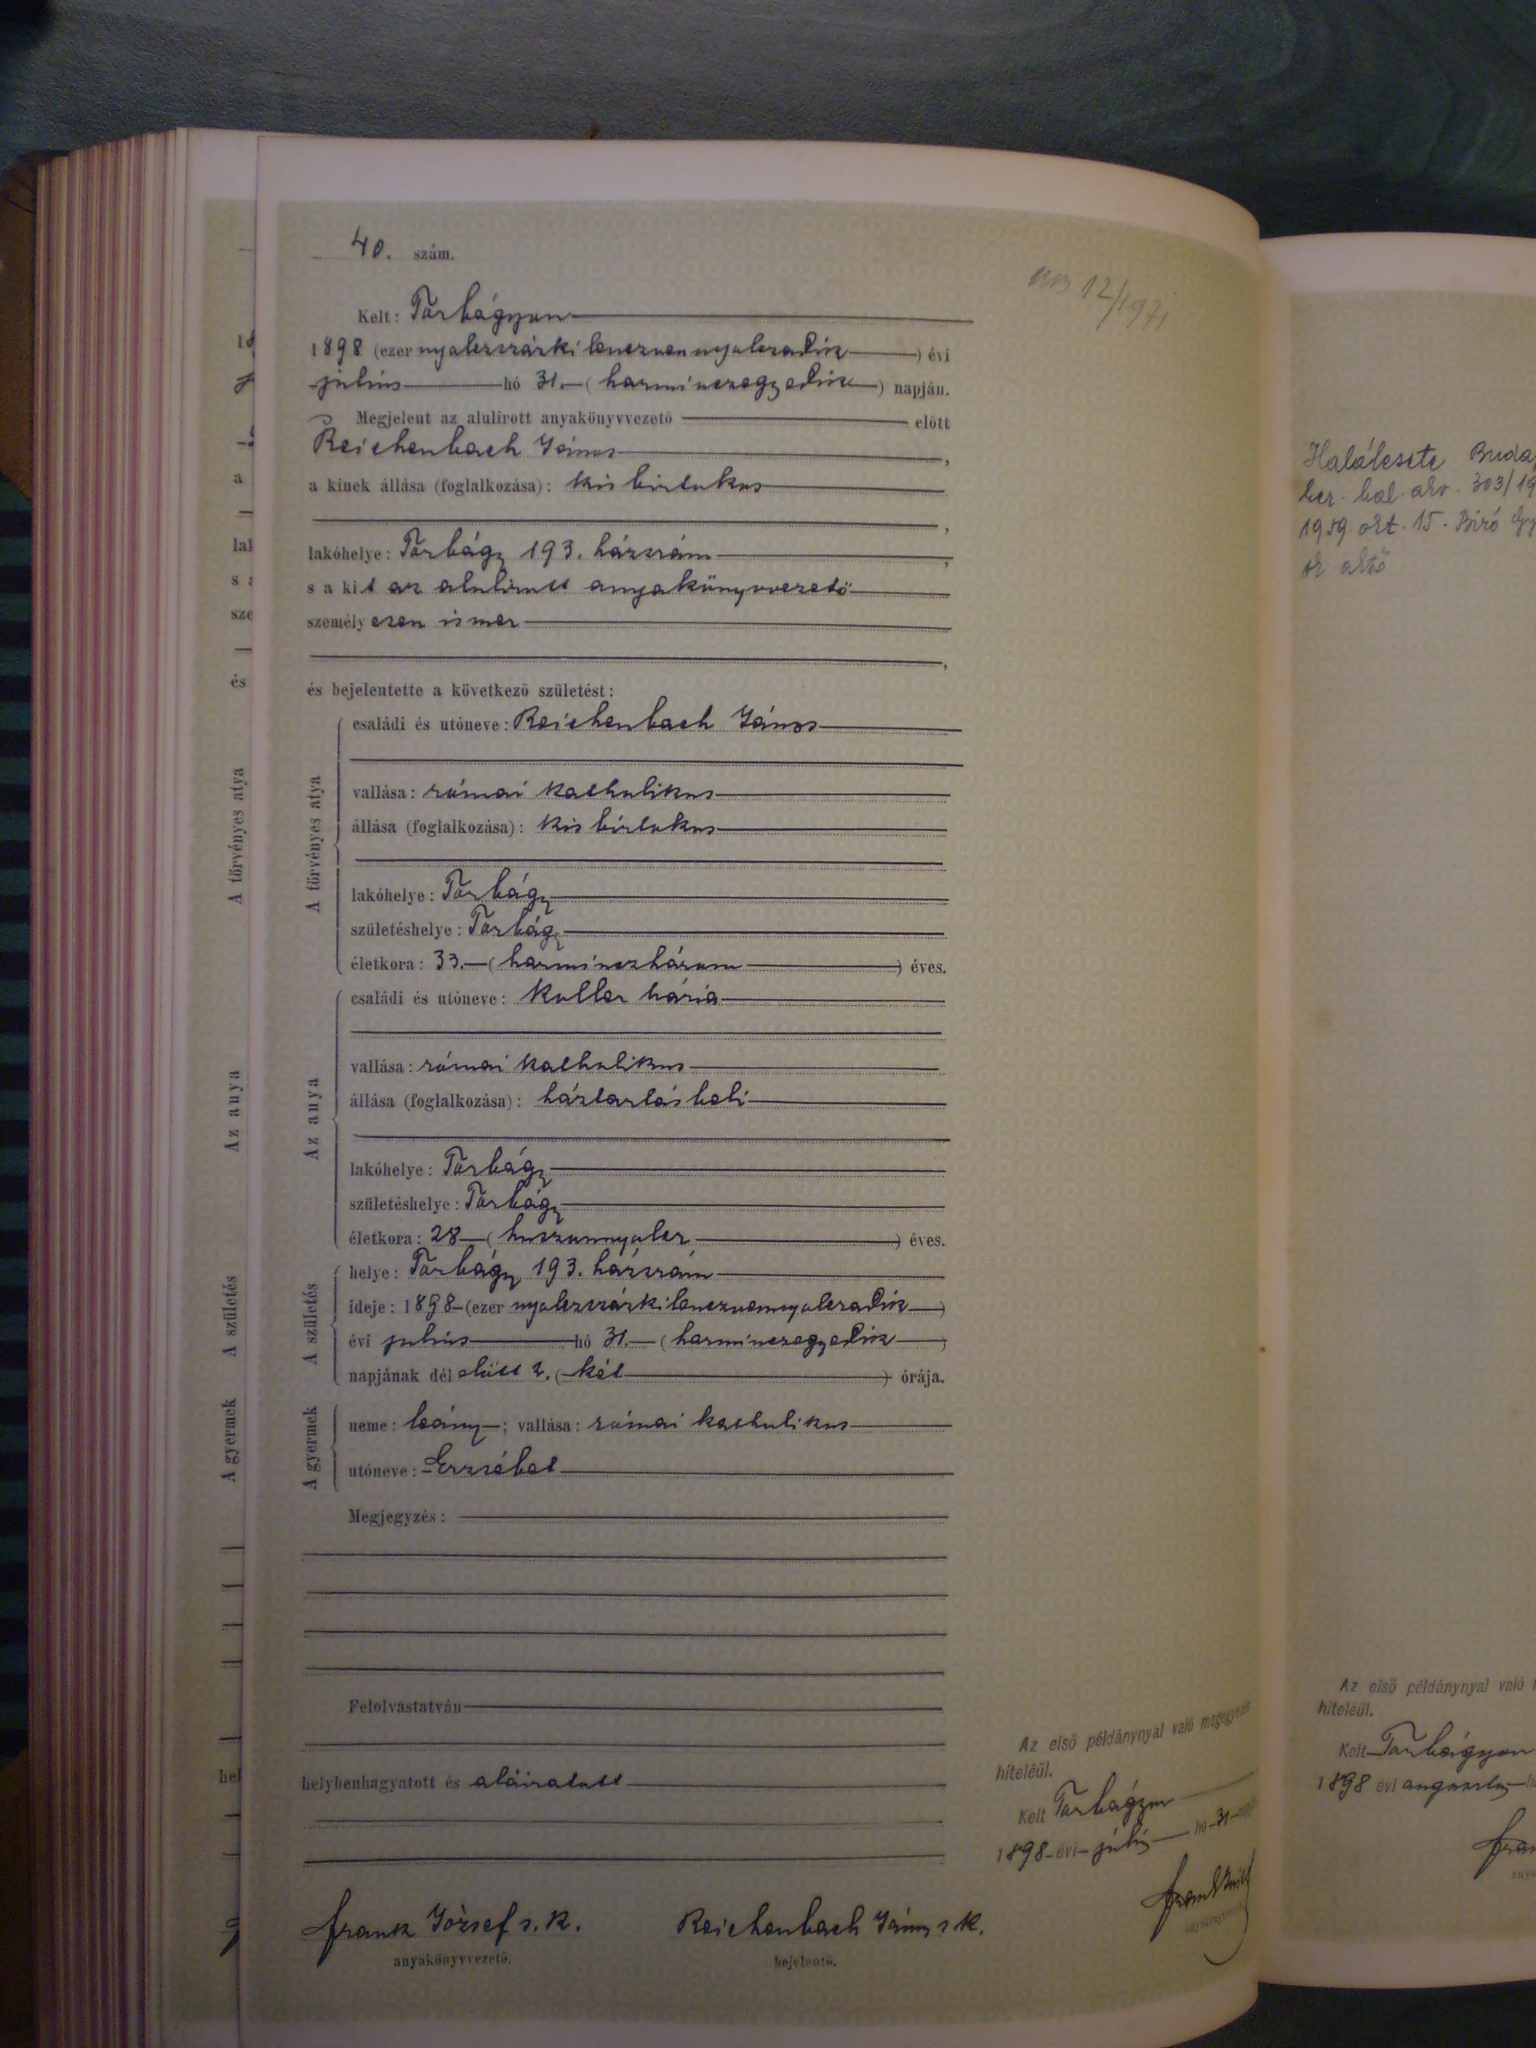 40. szám.
Kelt: Torbágyon
1898 (ezer nyolczszázkilenczvennyolczadik) évi
julius hó 31. (harminczegyedik) napján.
Megjelent az alulirott anyakönyvvezető előtt
Reichenbach János,
a kinek állása (foglalkozása): kis birtokos
,
lakóhelye: Torbágy 193. házszám,
s a kit az alulirott anyakönyvvezető
személyesen ismer
,
és bejelentette a következő születést:
A törvényes atya
családi és utóneve: Reichenbach János
vallása: római katholikus
állása (foglalkozása): kis birtokos
lakóhelye: Torbágy
születéshelye: Torbágy
életkora: 33. (harminczhárom) éves.
Az anya
családi és utóneve: Koller Mária
vallása: római katholikus
állása (foglalkozása): háztartásbeli
lakóhelye: Torbágy
születéshelye: Torbágy
életkora: 28 (huszonnyolcz) éves.
A születés
helye: Torbágy 193. házszám
ideje: 1898 (ezer nyolczszázkilenczvennyolczadik)
évi julius hó 31. (harminczegyedik)
napjának dél előtt 2. (két) órája.
A gyermek
neme: leány; vallása: római katholikus
utóneve: Erzsébet
Megjegyzés:
Felolvastatván
helybenhagyatott és aláiratott
Frank József s. k.
anyakönyvvezető.
Reichenbach János s k.
bejelentő.
12/1971
Az első példánynyal való megegyezés
hiteléül.
Kelt Torbágyon
1898 évi július hó 31
Halálesete
ker. hal. akv. 303/19
1959. okt. 15. Biró
Az első példánynyal való
hiteléül.
Kelt Torbágyon
1898 évi augusztus
A törvényes atya
Az anya
A születés
A gyermek
és